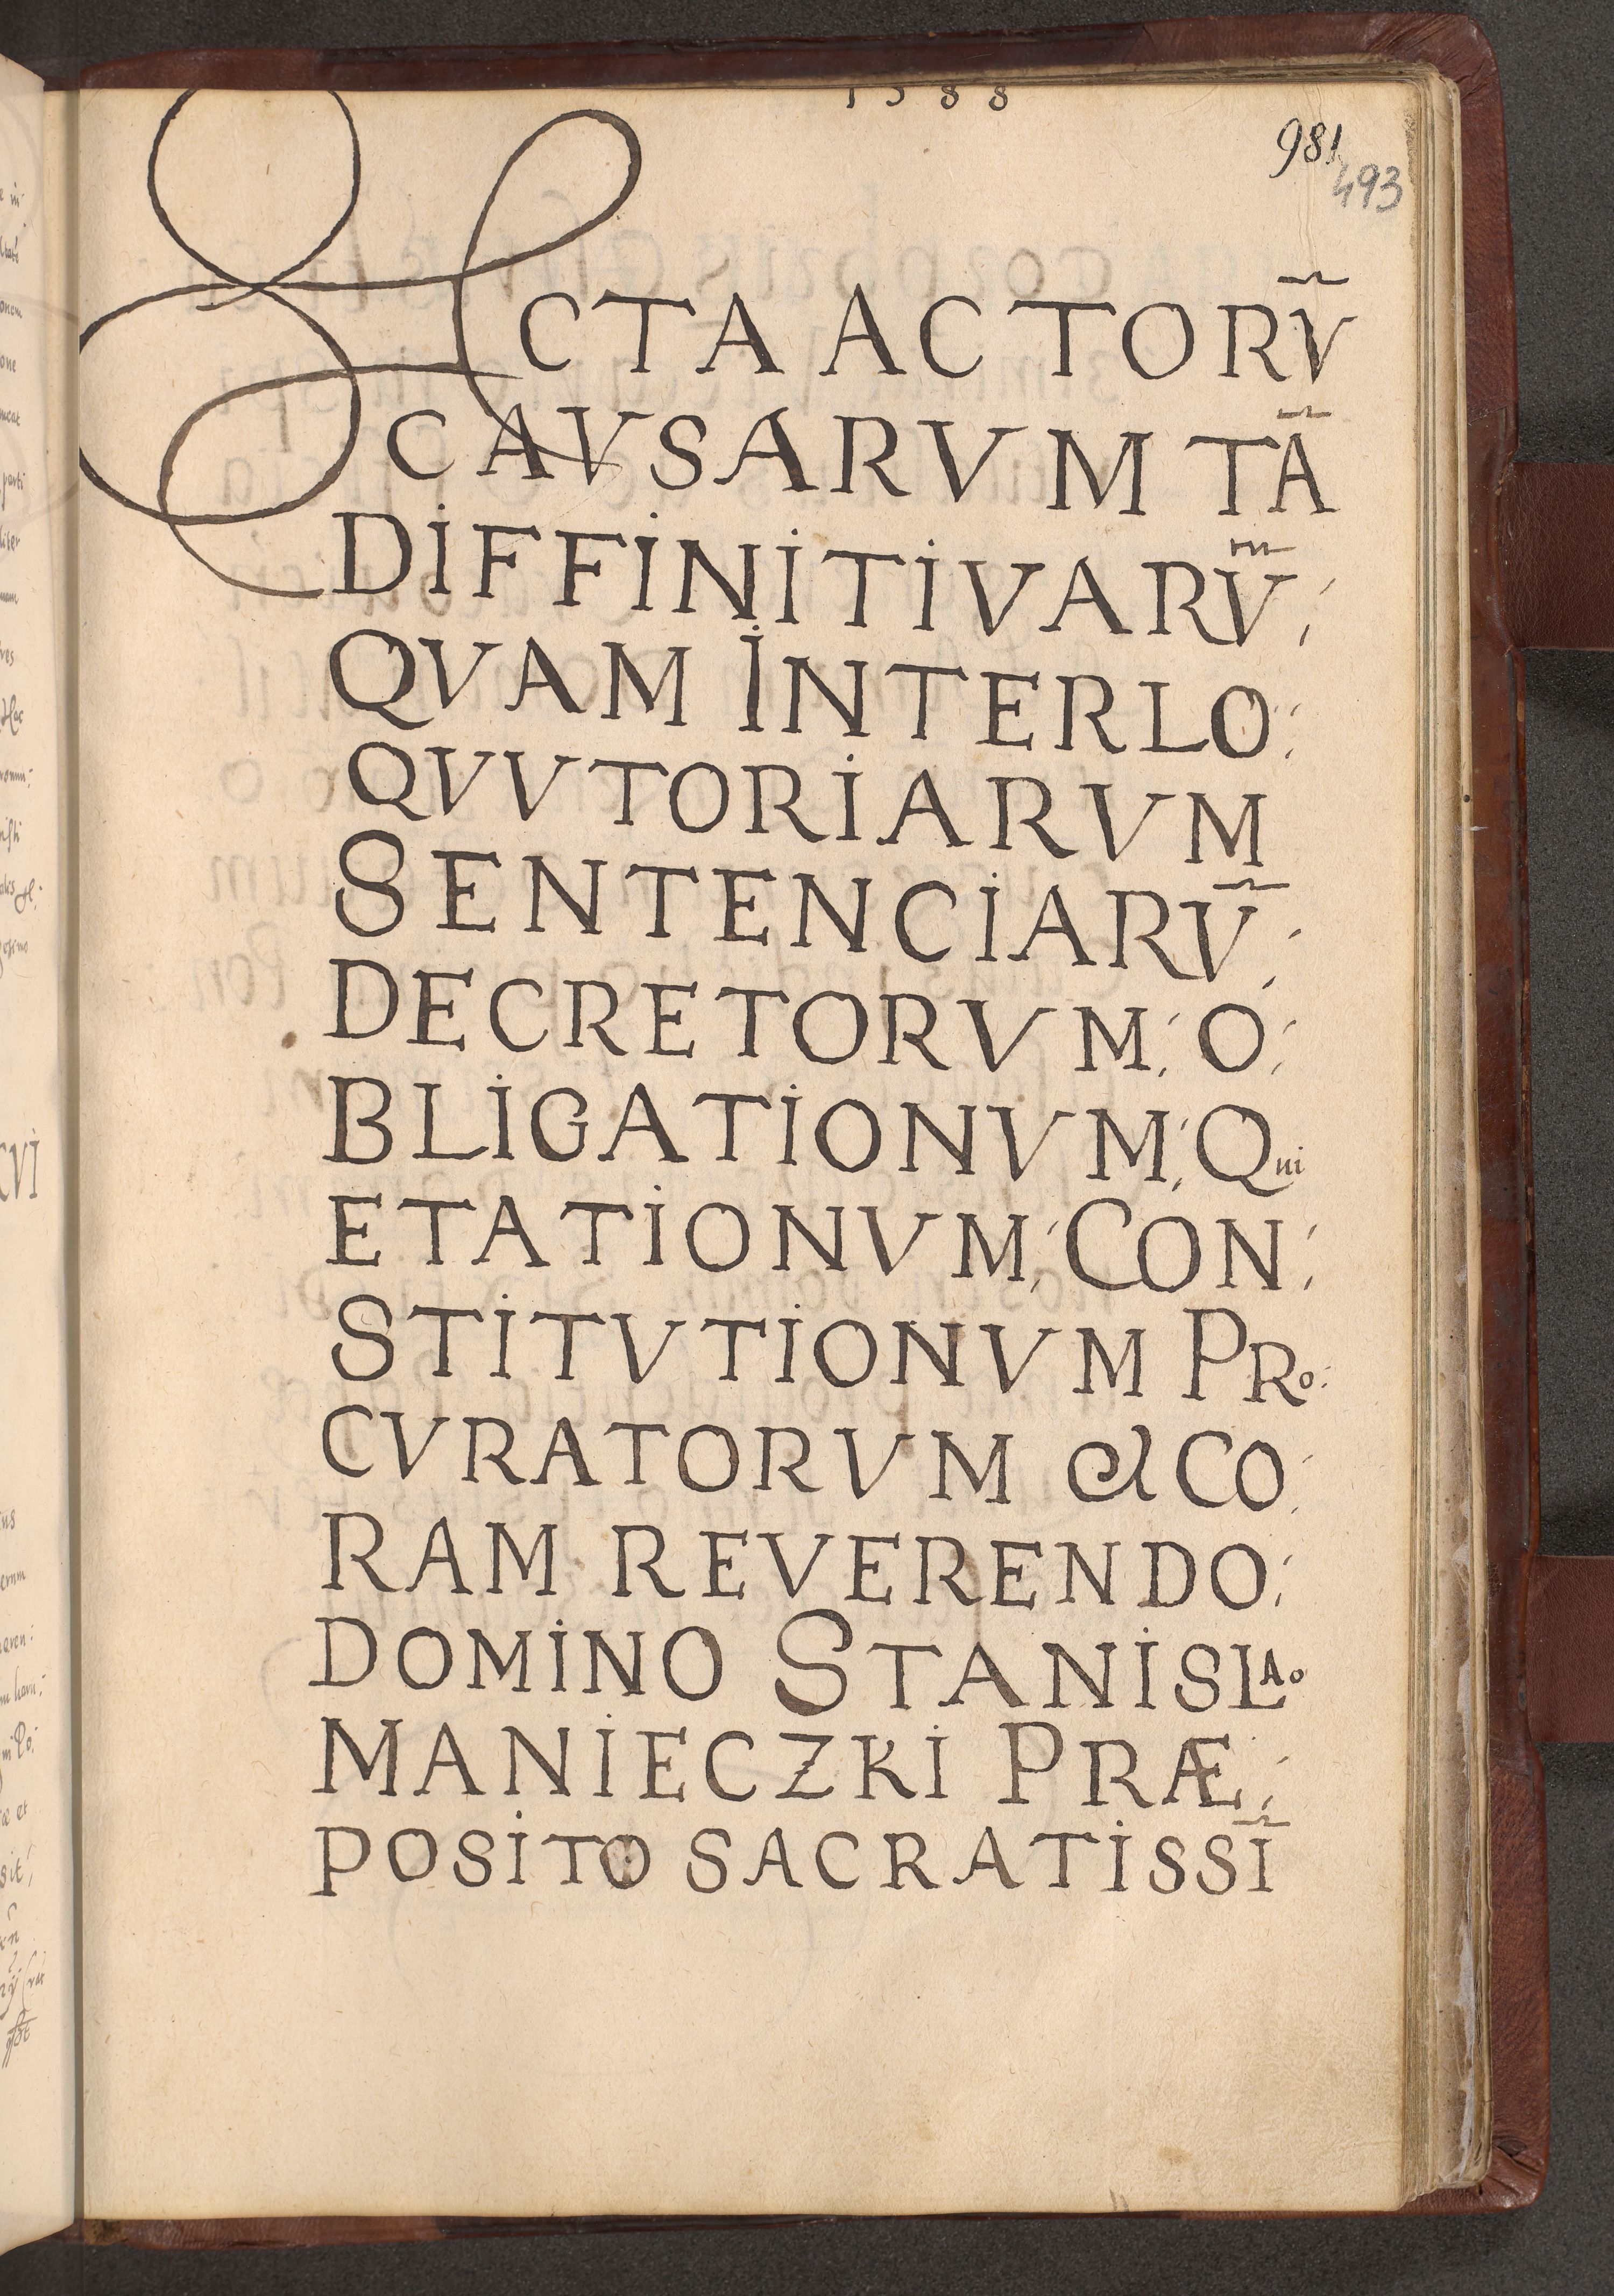 1588
981
493
ACTA ACTORṼ
CAVSARVM TÃ
DIFFINITIVARṼ;
QVAM INTERLO:
QVVTORIARVM
SENTENCIARṼ;
DECRETORVM; O;
BLIGATIONVM; Qui
ETATIONVM; CON;
STITVTIONVM PRo:
CVRATORVM & CO;
RAM REVERENDO;
DOMINO STANISLAo
MANIECZKI PRÆ;
POSITO SACRATISSĨ